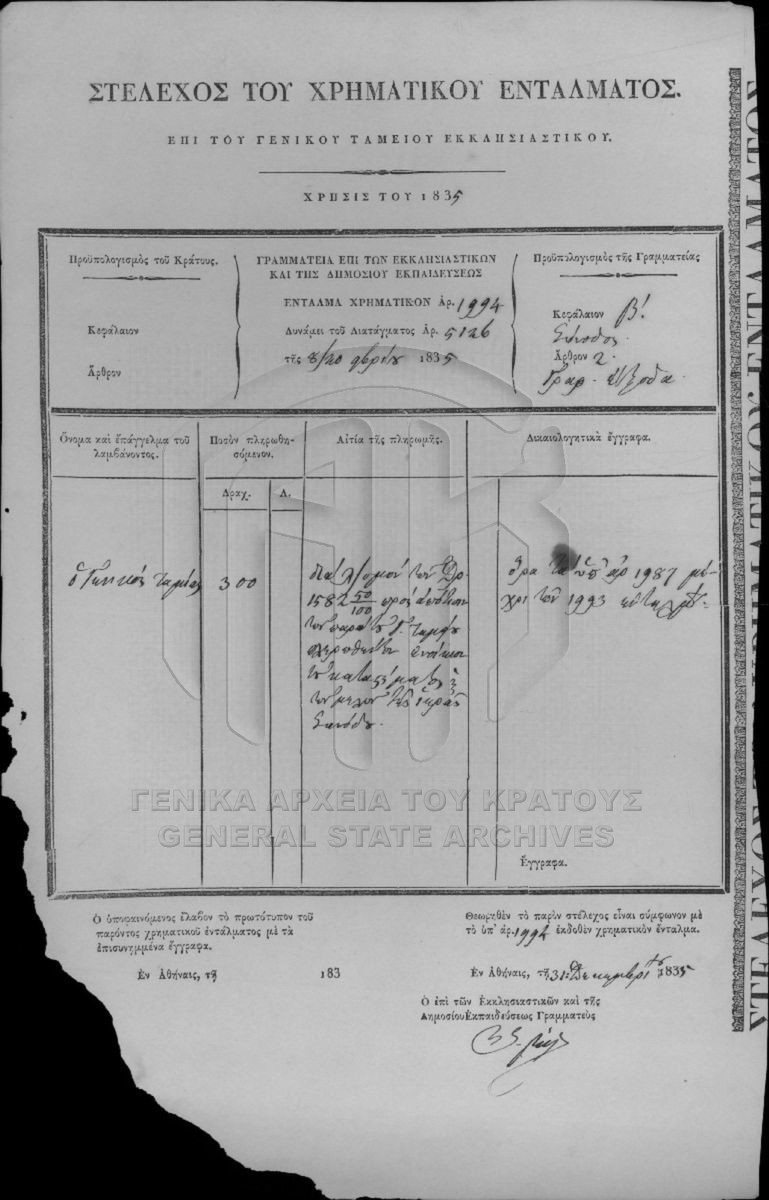 ΣΤΕΛΕΧΟΣ ΤΟΥ ΧΡΗΜΑΤΙΚΟΥ ΕΝΤΑΛΜΑΤΟΣ.
ΕΠΙ ΤΟΥ ΓΕΝΙΚΟΥ ΤΑΜΕΙΟΥ ΕΚΚΛΗΣΙΑΣΤΙΚΟΥ.
ΧΡΗΣΙΣ ΤΟΥ 1835
Προϋπολογισμὸς τοῦ Κράτους.
Κεφάλαιον
Ἄρθρον
ΓΡΑΜΜΑΤΕΙΑ ΕΠΙ ΤΩΝ ΕΚΚΛΗΣΙΑΣΤΙΚΩΝ
ΚΑΙ ΤΗΣ ΔΗΜΟΣΙΟΥ ΕΚΠΑΙΔΕΥΣΕΩΣ
ΕΝΤΑΛΜΑ ΧΡΗΜΑΤΙΚΟΝ Ἀρ. 1994
Δυνάμει τοῦ Διατάγματος Ἀρ. 5126
τῆς 8/20 1835
Προϋπολογισμὸς τῆς Γραμματείας
Κεφάλαιον β'.
Σύνοδος.
Ἄρθρον 2.
Γραφ. ἔξοδα.
Ὄνομα καὶ ἐπάγγελμα τοῦ
λαμβάνοντος.
Ποσὸν πληρωθη-
σόμενον.
Δραχ. Λ.
Αἰτία τῆς πληρωμῆς.
Δικαιολογητικὰ ἔγγραφα.
ὁ Γενικὸς ταμίας
300
διὰ λ/σμὸν τῶν Δρ.
1582 50/100 πρὸς
τῶν παρὰ τοῦ Γ. ταμείου
Συνόδου.
ὅρα τὰ ὑπ' ἀρ 1987 μέ-
χρι τῶν 1993
Ἔγγραφα.
Ὁ ὑποφαινόμενος ἔλαβον τὸ πρωτότυπον τοῦ
παρόντος χρηματικοῦ ἐντάλματος μὲ τὰ
ἐπισυνημμένα ἔγγραφα.
Ἐν Ἀθήναις, τῇ 183
Θεωρηθὲν τὸ παρὸν στέλεχος εἶναι σύμφωνον μὲ
τὸ ὑπ' ἀρ. 1994 ἐκδοθὲν χρηματικὸν ἔνταλμα.
Ἐν Ἀθήναις, τῇ 31 Δεκεμβρίου 1835
Ὁ ἐπὶ τῶν Ἐκκλησιαστικῶν καὶ τῆς
Δημοσίου Ἐκπαιδεύσεως Γραμματεὺς
ΣΤΕΛΕΧΟΣ ΤΟΥ ΧΡΗΜΑΤΙΚΟΥ ΕΝΤΑΛΜΑΤΟΣ
ΓΕΝΙΚΑ ΑΡΧΕΙΑ ΤΟΥ ΚΡΑΤΟΥΣ
GENERAL STATE ARCHIVES